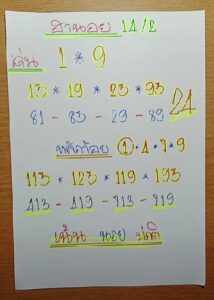 ฮานอย 14/2
เด่น 1 * 9
13 * 19 * 23 * 93
81 - 83 - 29 - 89
24
หลักร้อย ① * 4 * 7 * 9
113 * 123 * 119 * 193
413 - 419 - 713 - 719
เน้น นอย ปกติ